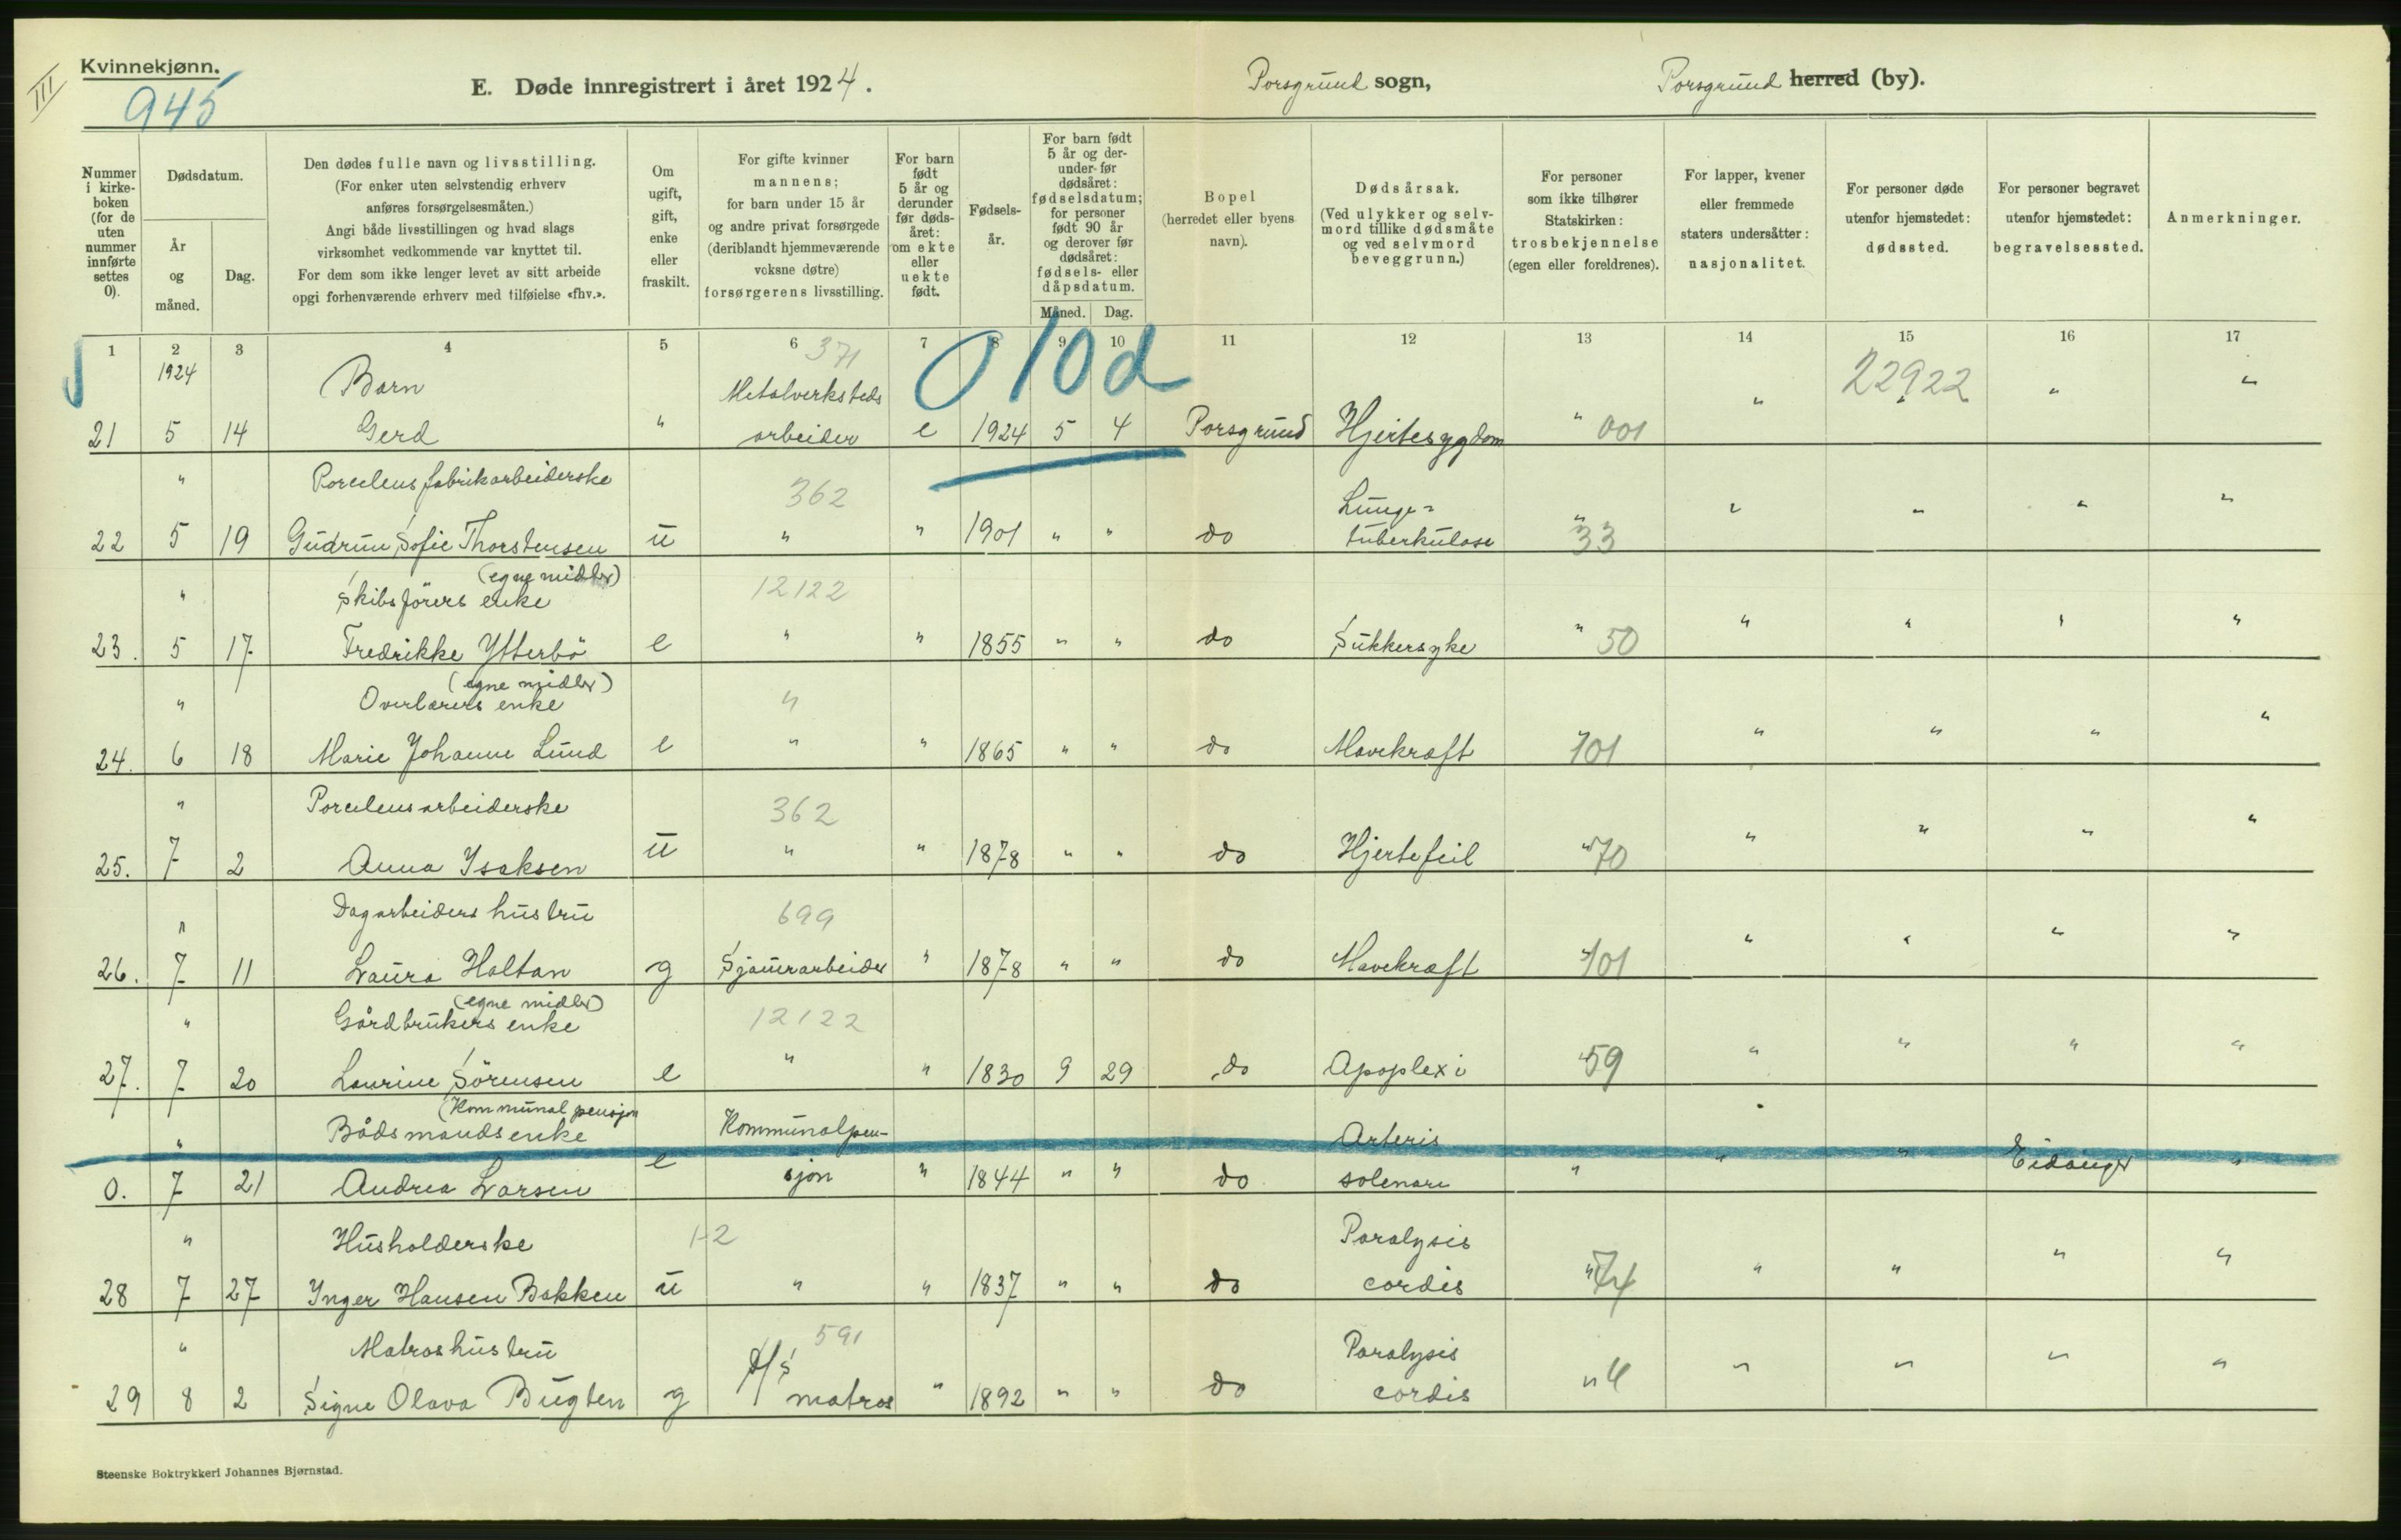 III
Kvinnekjønn.
945
E. Døde innregistrert i året 1924.
Porsgrund sogn,
Porsgrund herred (by).
Nummer i kirkeboken (for de uten nummer innførte settes 0).
Dødsdatum.
År og måned.
Dag.
Den dødes fulle navn og livsstilling.
(For enker uten selvstendig erhverv
anføres forsørgelsesmåten.)
Angi både livsstillingen og hvad slags
virksomhet vedkommende var knyttet til.
For dem som ikke lenger levet av sitt arbeide
opgi forhenværende erhverv med tilføielse «fhv.».
Om ugift, gift, enke eller fraskilt.
For gifte kvinner
mannens;
for barn under 15 år
og andre privat forsørgede
(deriblandt hjemmeværende
voksne døtre)
forsørgerens livsstilling.
For barn født 5 år og derunder før dødsåret: om ekte eller uekte født.
Fødselsår.
For barn født
5 år og derunder før
dødsåret:
fødselsdatum;
for personer
født 90 år
og derover før
dødsåret:
fødsels- eller
dåpsdatum.
Måned. Dag.
Bopel
(herredet eller byens
navn).
Dødsårsak.
(Ved ulykker og selvmord tillike dødsmåte
og ved selvmord
beveggrunn.)
For personer
som ikke tilhører
Statskirken:
trosbekjennelse
(egen eller foreldrenes).
For lapper, kvener
eller fremmede
staters undersåtter:
nasjonalitet.
For personer døde
utenfor hjemstedet:
dødssted.
For personer begravet
utenfor hjemstedet:
begravelsessted.
Anmerkninger.
1 2 3 4 5 6 7 8 9 10 11 12 13 14 15 16 17
1924 Barn 371 Metalverksteds 010d " 22922 " "
21 5 14 Gerd " arbeider e 1924 5 4 Porsgrund Hjertesygdom " 001
" Porcelensfabrikarbeiderske 362 Lunge= " " " "
22 5 19 Gudrun Sofie Thorstensen u " " 1901 " " do tuberkulose " 33
(egne midler)
" Skibsførers enke 12122 " " " "
23. 5 17 Fredrikke Ytterbö e " " 1855 " " do Sukkersyke " 50
(egne midler)
" Overlærers enke " " " " "
24. 6 18 Marie Johanne Lund e " " 1865 " " do Mavekræft " 101
" Porcelensarbeiderske 362 " " " "
25. 7 2 Anna Isaksen u " " 1878 " " do Hjertefeil " 70
" Dagarbeiders hustru 699 " " " "
26. 7 11 Laura Holtan g Sjauerarbeider " 1878 " " do Mavekræft " 101
(egne midler)
" Gårdbrukers enke 12122 " " " "
27. 7 20 Laurine Sörensen e " " 1830 9 29 do Apoplexi " 59
(Kommunal pensjon
" Bådsmandsenke Kommunalpen- Arteris
0. 7 21 Andrea Larsen e sjon " 1844 " " do solenare " " " Eidanger "
" Husholderske 1-2 Paralysis " "
28 7 27 Inger Hansen Bakken u " " 1837 " " do cordis " 74 " "
" Matroshustru 591 Paralysis " " " "
29 8 2 Signe Olava Bugten g D/S matros " 1892 " " do cordis " 4
Steenske Boktrykkeri Johannes Bjørnstad.